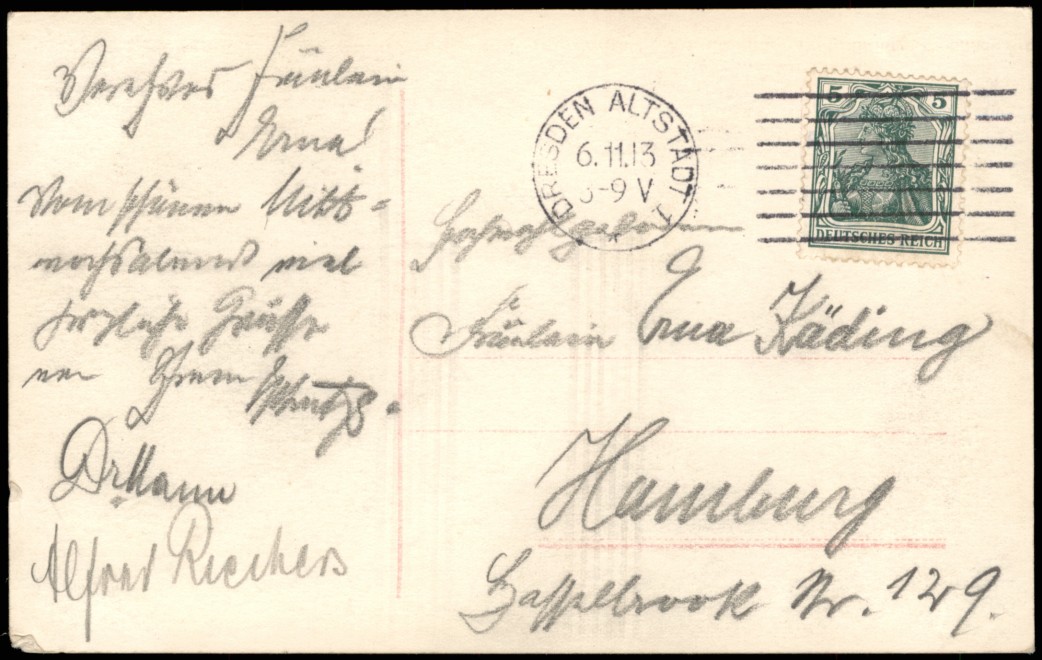 Verehrtes Fräulein
Erna!
Vom schönen Mitt-
wochabend viel
herzliche Grüße
von Ihrem
Dr Mann
Alfred Riechers
DRESDEN ALTSTADT 1
6.11.13
-9 V
*
5 5
DEUTSCHES REICH
Hochwohlgeboren
Fräulein Erna Käding
Hamburg
Hasselbrook Nr. 129.